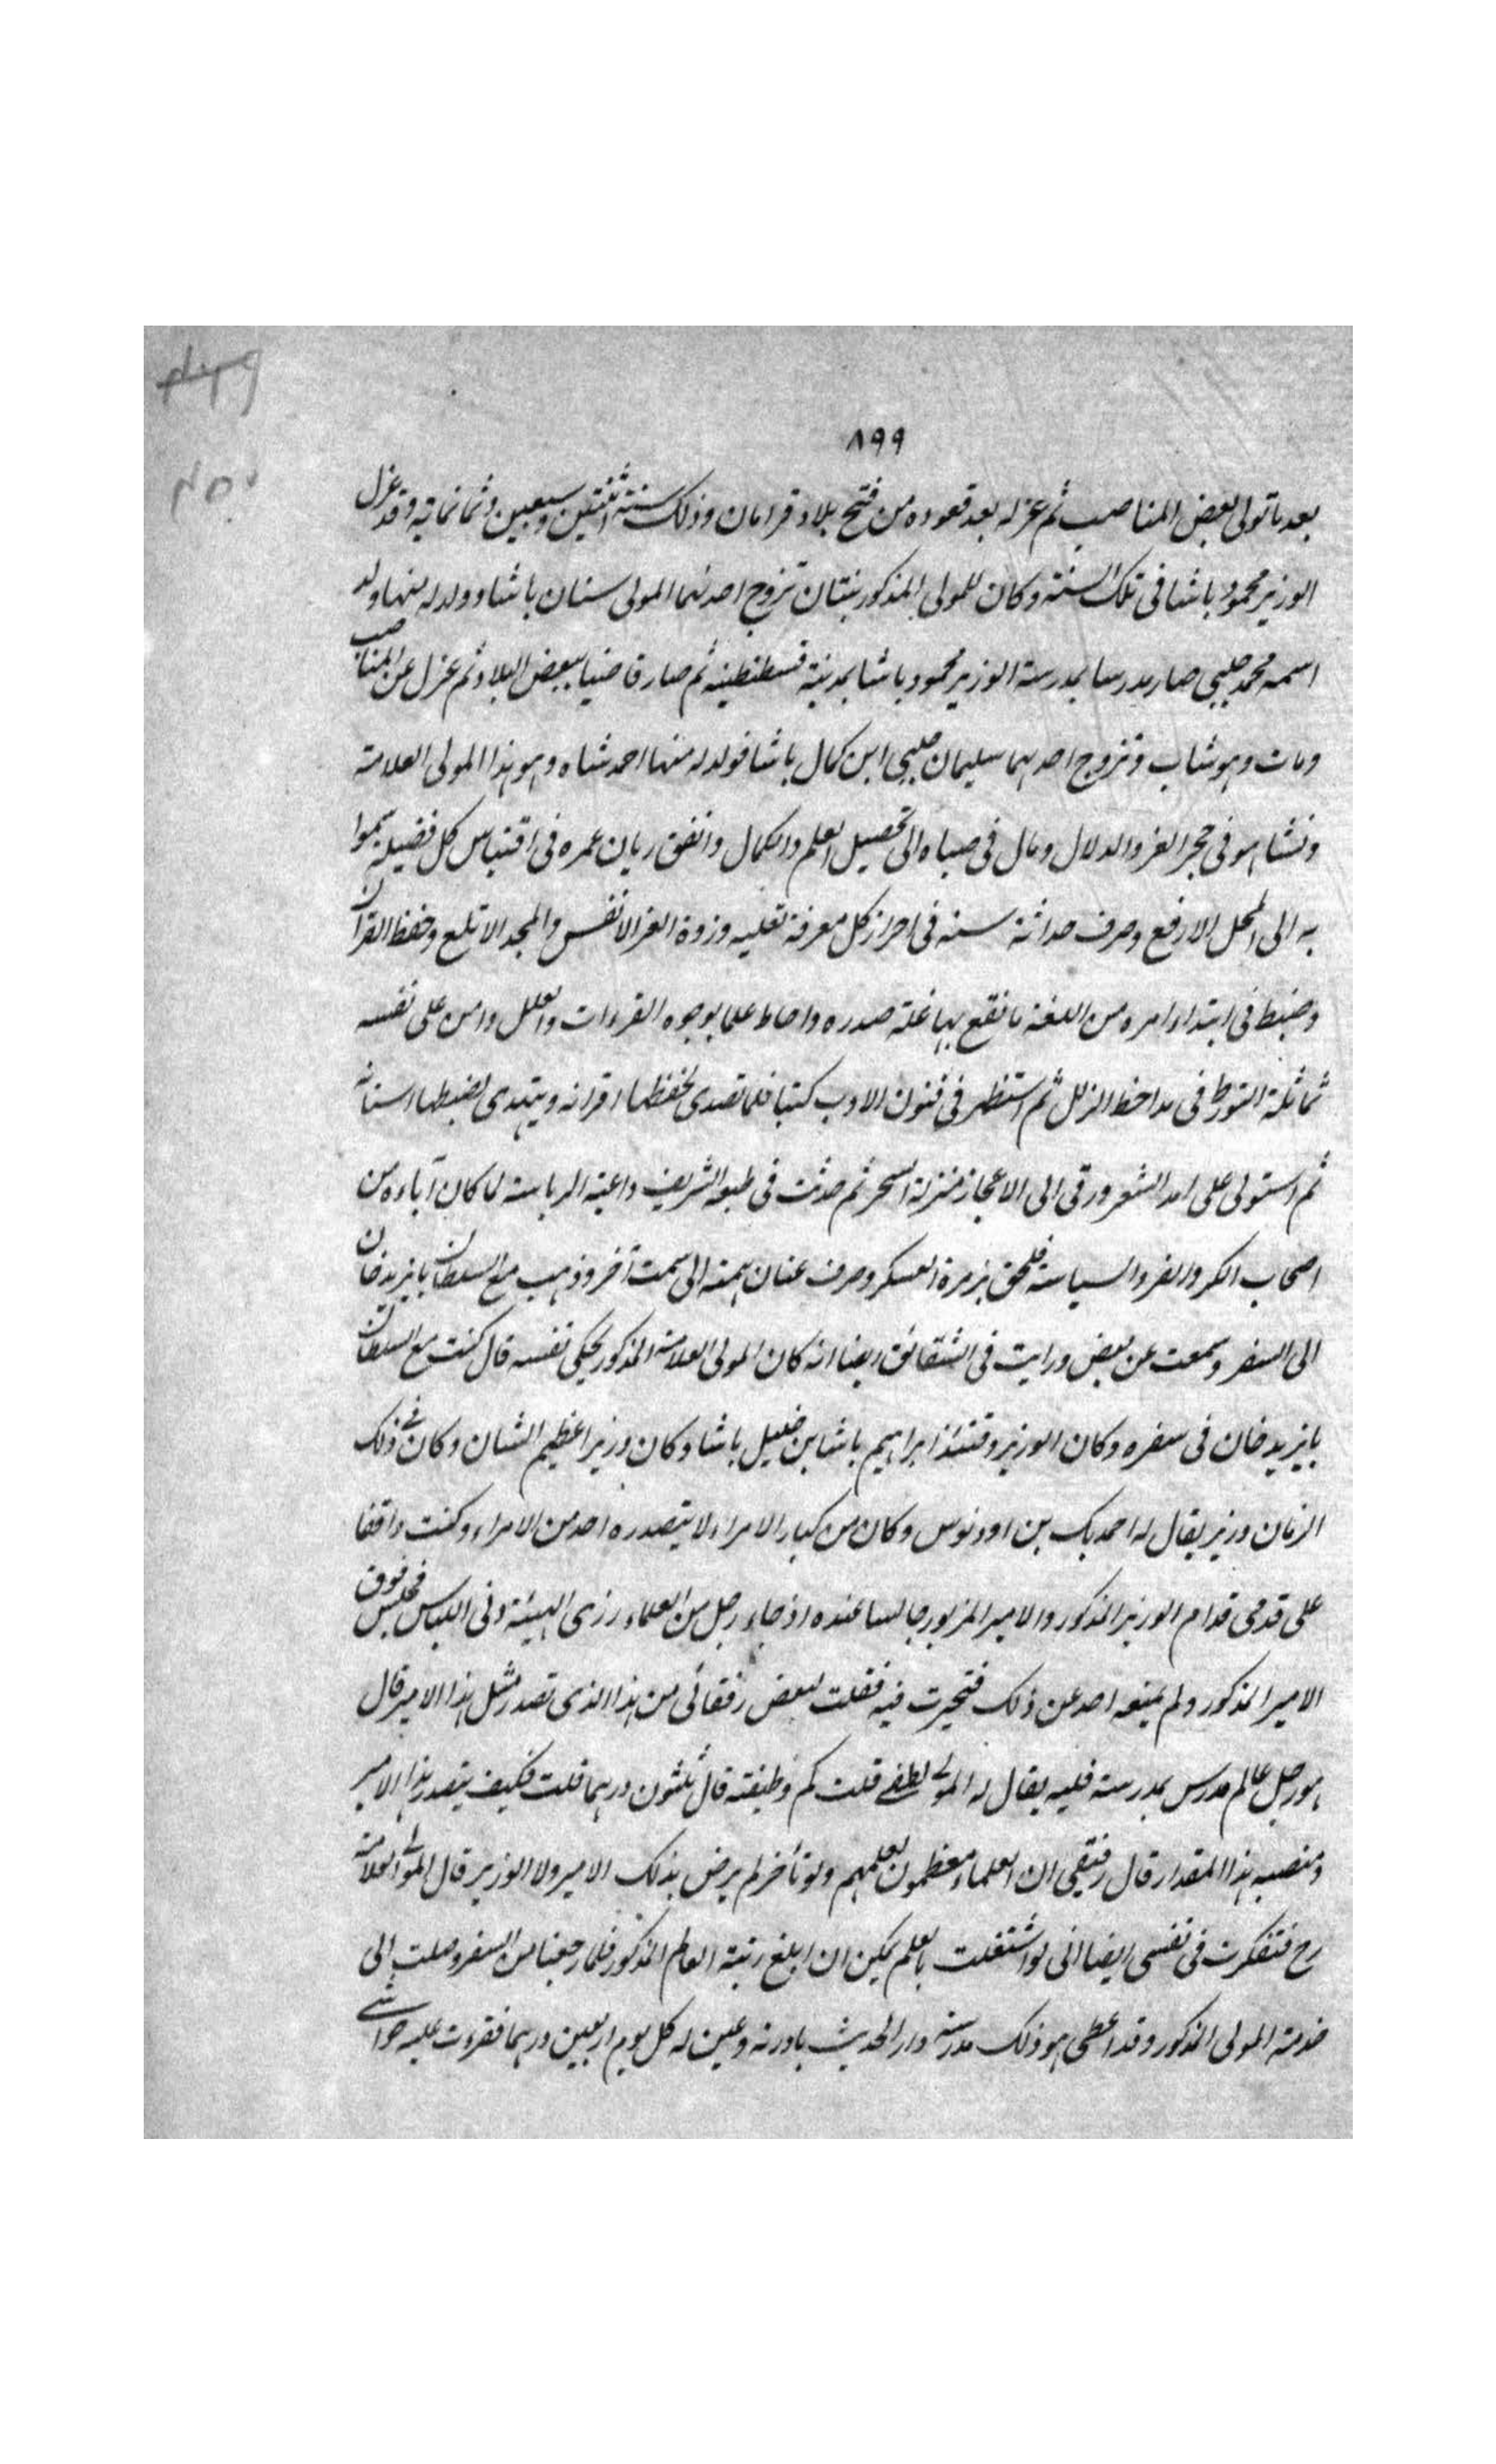 ٨٩٩
بعد ما تولى بعض المناصب ثم عزله بعد قعوده من فتح بلاد قرامان وذلك سنة اثنتين وسبعين وثمانمائة وقد عزل
الوزير محمود باشا فى تلك السنة وكان للمولى المذكور بنتان تزوج احدىهما المولى سنان باشا وولد له منها ولد
اسمه محمد چلبى صار مدرسا بمدرسة الوزير محمود باشا بمدينة قسطنطينيه ثم صار قاضيا ببعض البلاد ثم عزل عن المناصب
ومات وهو شاب وتزوج احدىهما سليمان چلبى ابن كمال باشا فولد له منها احمد شاه وهو هذا المولى العلامة
ونشا هو فى حجر العز والدلال ومال فى صباه الى تحصيل العلم والكمال وانفق ريان عمره فى اقتباس كل فضيلة يسموا
به الى المحل الارفع وصرف حداثة سنه فى احراز كل معرفة تعليه وذروة العز الانفس والمجد الاتلع وحفظ القرآن
وضبط فى ابتداء امره من اللغة ما نقع بها غلة صدره واحاط علما بوجوه القرءات والعلل وامن على نفسه
التورط فى مداحض الزلل ثم استظهر فى فنون الادب كتبا قلما تصدى لحفظها اقرانه ويهتدى لضبطها اسنانه
ثم استولى على امد الشعر ورقى الى الاعجاز منزلة السحر ثم حدثت فى طبعه الشريف داعية الرياسة لما كان آباءه من
اصحاب الكر والفر والسياسة فلحق بزمرة العسكر وصرف عنان همته الى سمت آخر وذهب مع السلطان بايزيد خان
الى السفر وسمعت عن بعض ورايت فى الشقائق ايضا انه كان المولى العلامة المذكور يحكى نفسه قال كنت مع السلطان
بايزيد خان فى سفره وكان الوزير وقتئذ ابراهيم باشا بن خليل باشا وكان وزيرا عظيم الشان وكان فى ذلك
الزمان وزير يقال له احمد بك بن اورنوس وكان من كبار الامراء لا يتصدره احد من الامراء وكنت واقفا
على قدمى قدام الوزير المذكور والامير المزبور جالسا عنده اذ جاء رجل من العلماء رزى الهيئة دنى اللباس فجلس فوق
الامير المذكور ولم يمنعه احد عن ذلك فتحيرت فيه فقلت لبعض رفقائى من هذا الذى تصدر مثل هذا الامير قال
هو رجل عالم مدرس بمدرسة فلبه يقال له المولى لطفى قلت كم وظيفته قال ثلثون درهما قلت فكيف يتصدر هذا الامير
ومنصبه هذا المقدار قال رفيقى ان العلماء معظمون لعلمهم ولو تأخر لم يرض بذلك الامير ولا الوزير قال المولى العلامة
رح فتفكرت فى نفسى ايضا انى لو اشتغلت بالعلم يمكن ان ابلغ رتبة العالم المذكور فلما رجعنا من السفر وصلت الى
خدمة المولى المذكور وقد اعطى هو ذلك مدرسة دار الحديث بادرنه وعين له كل يوم اربعين درهما فقرءت عليه حواشى